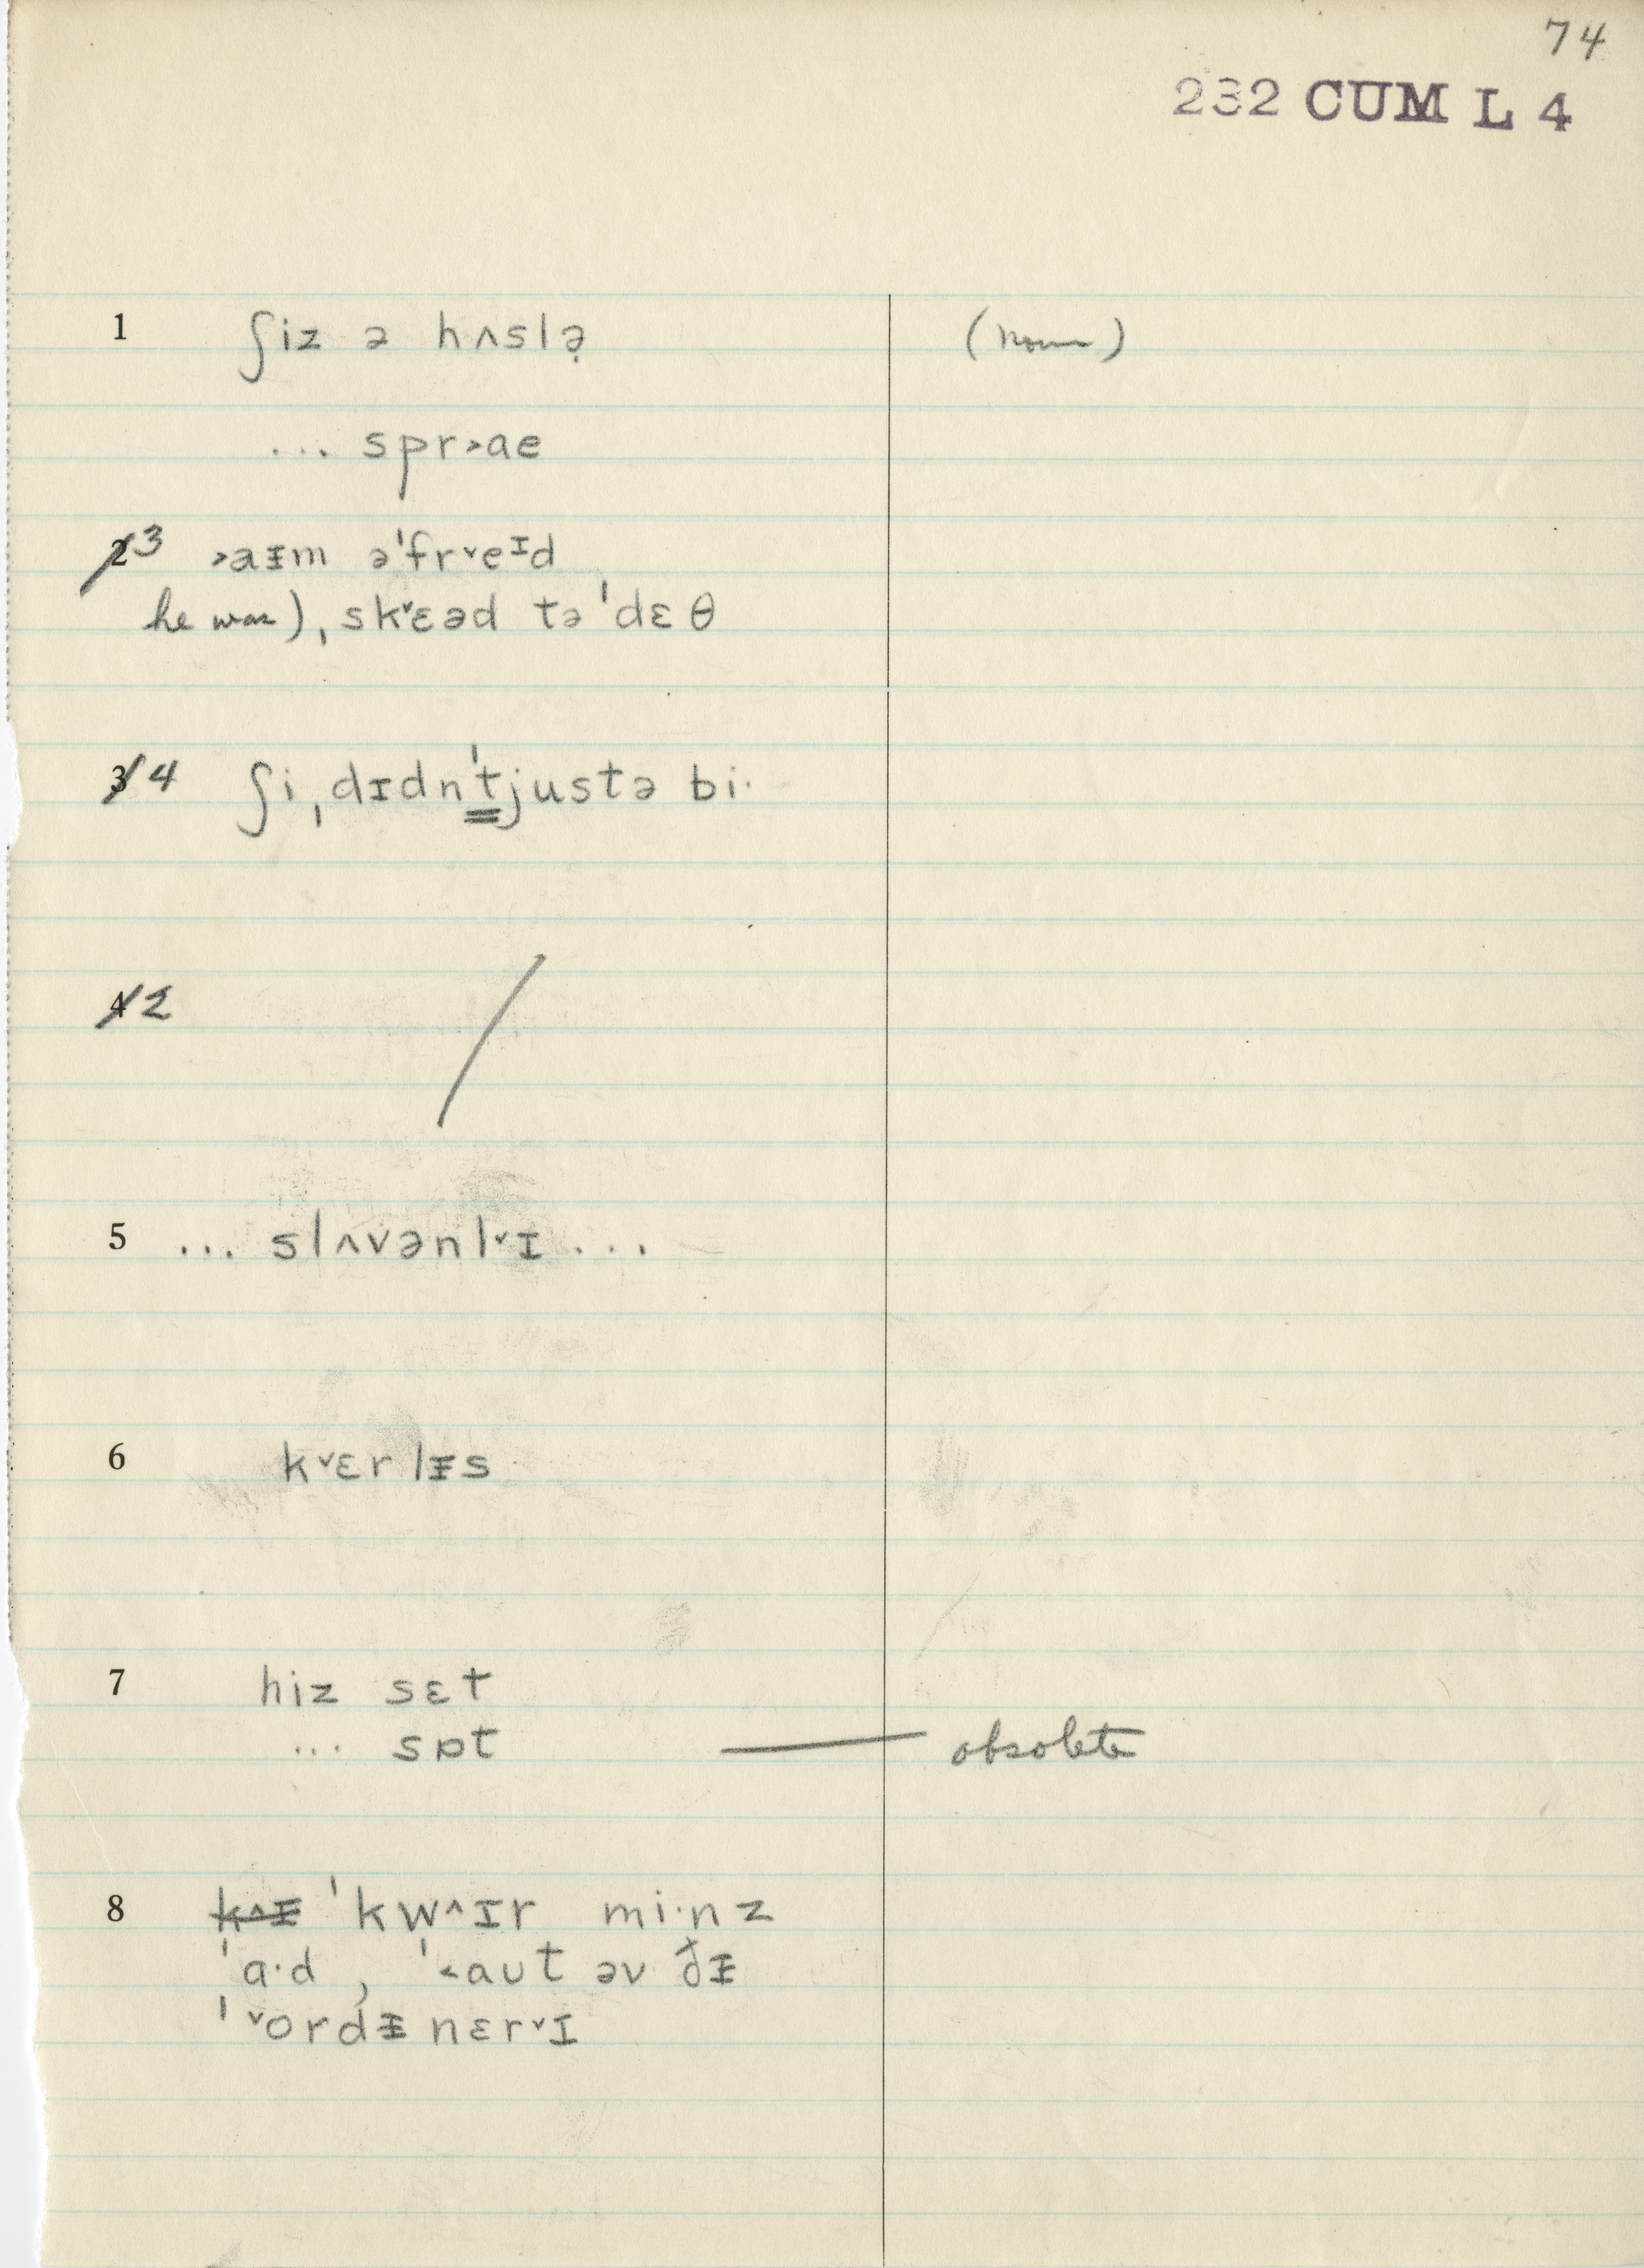 74
232 CUM L 4
1 ʃiz ə hʌslə̣ (noun)
... spr˃ae
2 3 ˃aᵻm ə'fr˅eᴵd
he was) ˌsk˅ɛəd tə 'dɛθ
3 4 ʃi ˌdɪdn't̳justə bi·
4 2 /
5 ... slʌvənl˅ɪ ...
6 k˅ɛrlᵻs
7 hiz sɛt
... sɒt — obsolete
8 k˄ᵻ 'kw˄ɪr mi·nz
'ɑ·d , '˂aʊt əv ðᵻ
'˅ordᵻnɛr˅ɪ